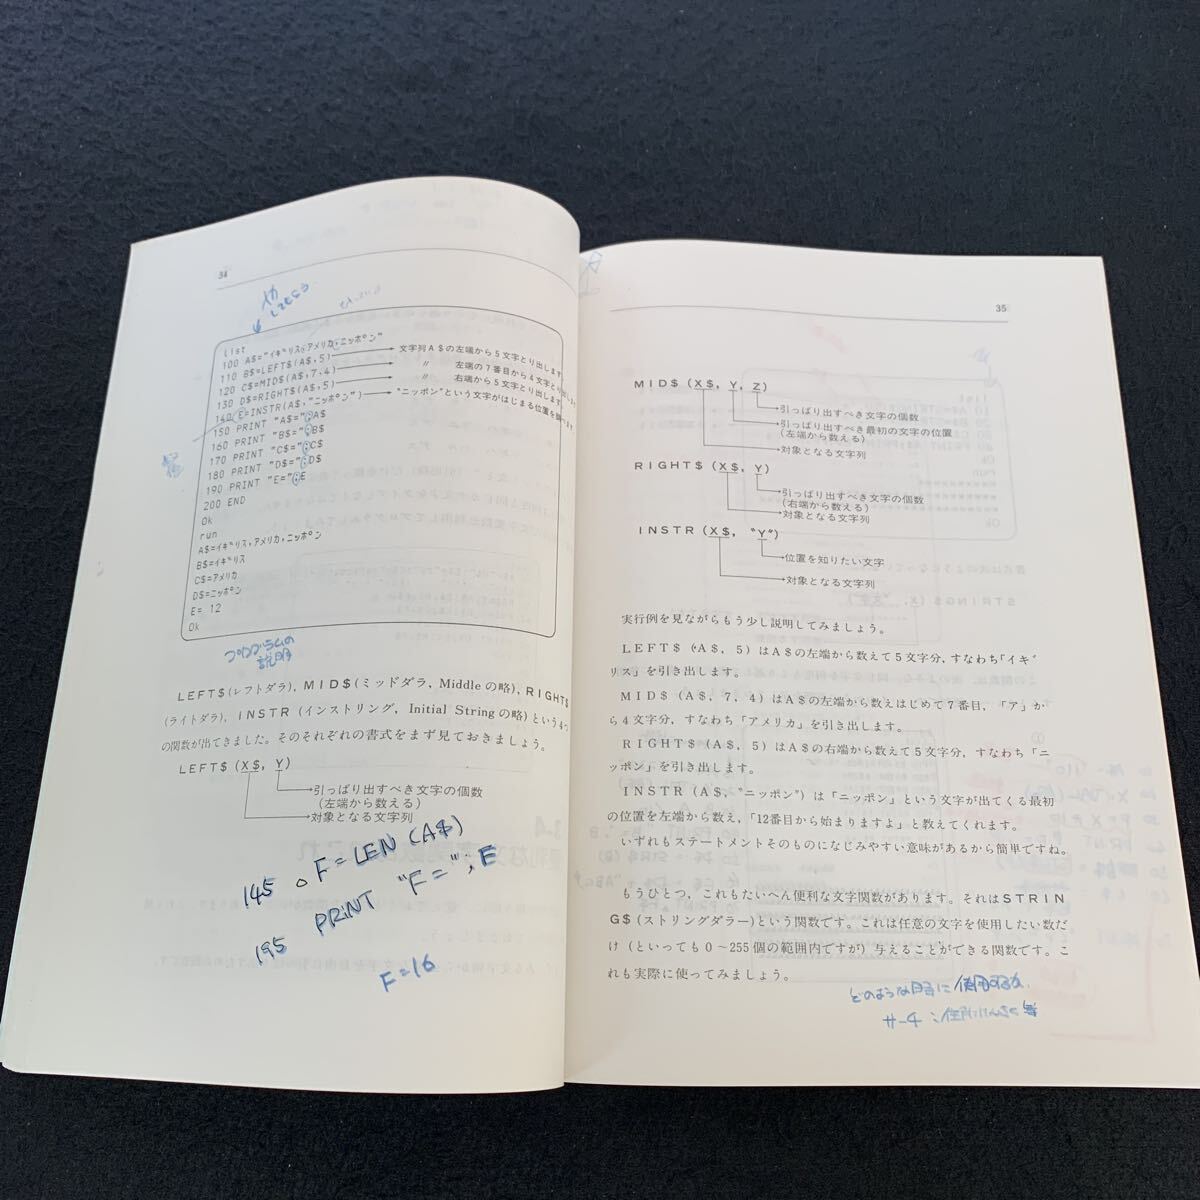 34
list
100 A$="イギリス,アメリカ,ニッポン"
110 B$=LEFT$(A$,5) 文字列A$の左端から5文字とり出します
120 C$=MID$(A$,7,4) 〃 左端の7番目から4文字とり出します
130 D$=RIGHT$(A$,5) 〃 右端から5文字とり出します
140 E=INSTR(A$,"ニッポン") "ニッポン"という文字がはじまる位置を
150 PRINT "A$=";A$
160 PRINT "B$=";B$
170 PRINT "C$=";C$
180 PRINT "D$=";D$
190 PRINT "E=";E
200 END
Ok
run
A$=イギリス,アメリカ,ニッポン
B$=イギリス
C$=アメリカ
D$=ニッポン
E= 12
Ok
プログラムの
説明
LEFT$(レフトダラ), MID$(ミッドダラ, Middleの略), RIGHT$
(ライトダラ), INSTR(インストリング, Initial Stringの略)という4つ
の関数が出てきました。そのそれぞれの書式をまず見ておきましょう。
LEFT$(X$, Y)
引っぱり出すべき文字の個数
(左端から数える)
対象となる文字列
145 F=LEN(A$)
195 PRINT "F=";E
F=16
35
MID$(X$, Y, Z)
引っぱり出すべき文字の個数
引っぱり出すべき最初の文字の位置
(左端から数える)
対象となる文字列
RIGHT$(X$, Y)
引っぱり出すべき文字の個数
(右端から数える)
対象となる文字列
INSTR(X$, "Y")
位置を知りたい文字
対象となる文字列
実行例を見ながらもう少し説明してみましょう。
LEFT$(A$, 5)はA$の左端から数えて5文字分, すなわち「イギ
リス」を引き出します。
MID$(A$, 7, 4)はA$の左端から数えはじめて7番目, 「ア」か
ら4文字分, すなわち「アメリカ」を引き出します。
RIGHT$(A$, 5)はA$の右端から数えて5文字分, すなわち「ニ
ッポン」を引き出します。
INSTR(A$, "ニッポン")は「ニッポン」という文字が出てくる最初
の位置を左端から数え, 「12番目から始まりますよ」と教えてくれます。
いずれもステートメントそのものになじみやすい意味があるから簡単ですね。
もうひとつ, これもたいへん便利な文字関数があります。それはSTRIN
G$(ストリングダラー)という関数です。これは任意の文字を使用したい数だ
け(といっても0〜255個の範囲内ですが)与えることができる関数です。こ
れも実際に使ってみましょう。
どのような時に使用するか
サーチ: